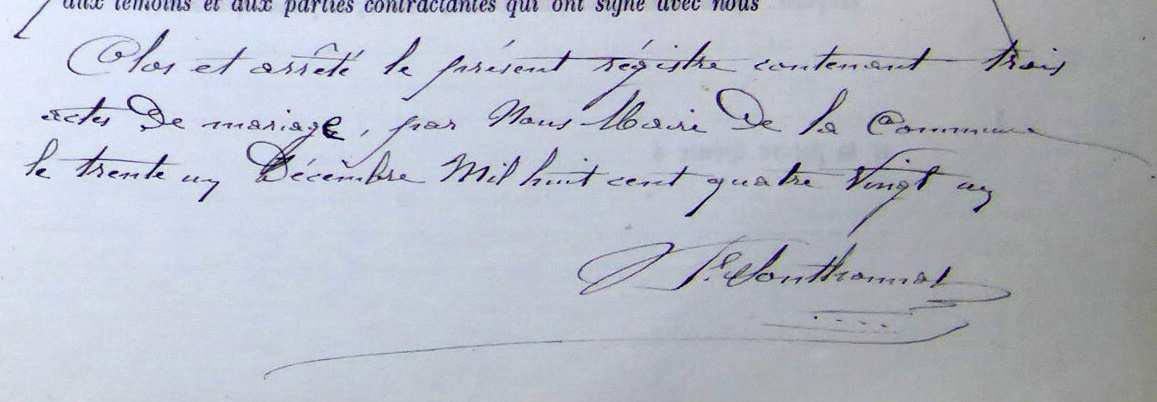 aux témoins et aux parties contractantes qui ont signé avec nous
Clos et arrêté le présent régistre contenant trois
actes De mariage, par Nous Maire De la Commune
le trente un Décembre Mil huit cent quatre Vingt un